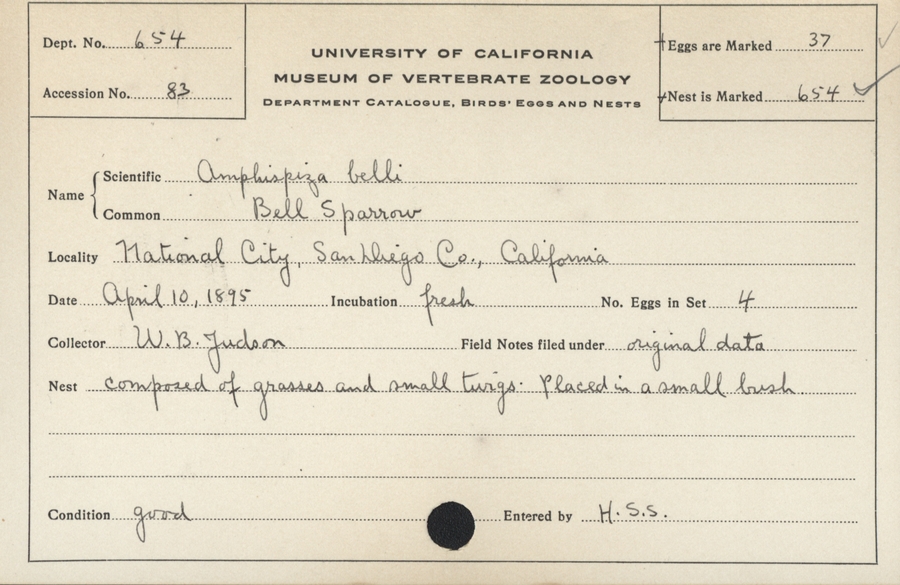 Dept. No. 654
UNIVERSITY OF CALIFORNIA
MUSEUM OF VERTEBRATE ZOOLOGY
DEPARTMENT CATALOGUE, BIRDS' EGGS AND NESTS
Eggs are Marked 37
Accession No. 83
Nest is Marked 654
Name
Scientific Amphispiza belli
Common Bell Sparrow
Locality National City, San Diego Co., California
Date April 10, 1895 Incubation fresh No. Eggs in Set 4
Collector W. B. Judson Field Notes filed under original data
Nest composed of grasses and small twigs. Placed in a small bush.
Condition good Entered by H. S. S.